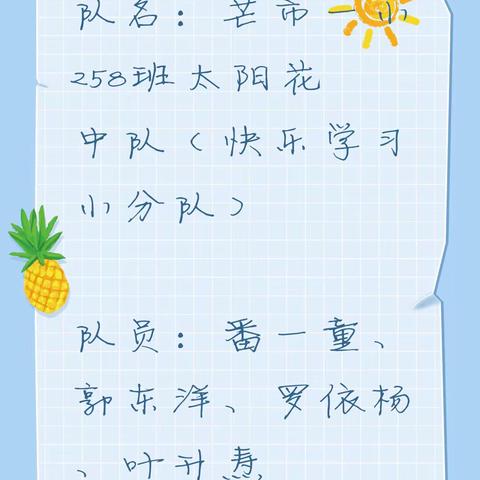 队名：芒市一小
258班太阳花
中队（快乐学习
小分队）
队员：番一童、
郭东洋、罗依杨
、叶升焘